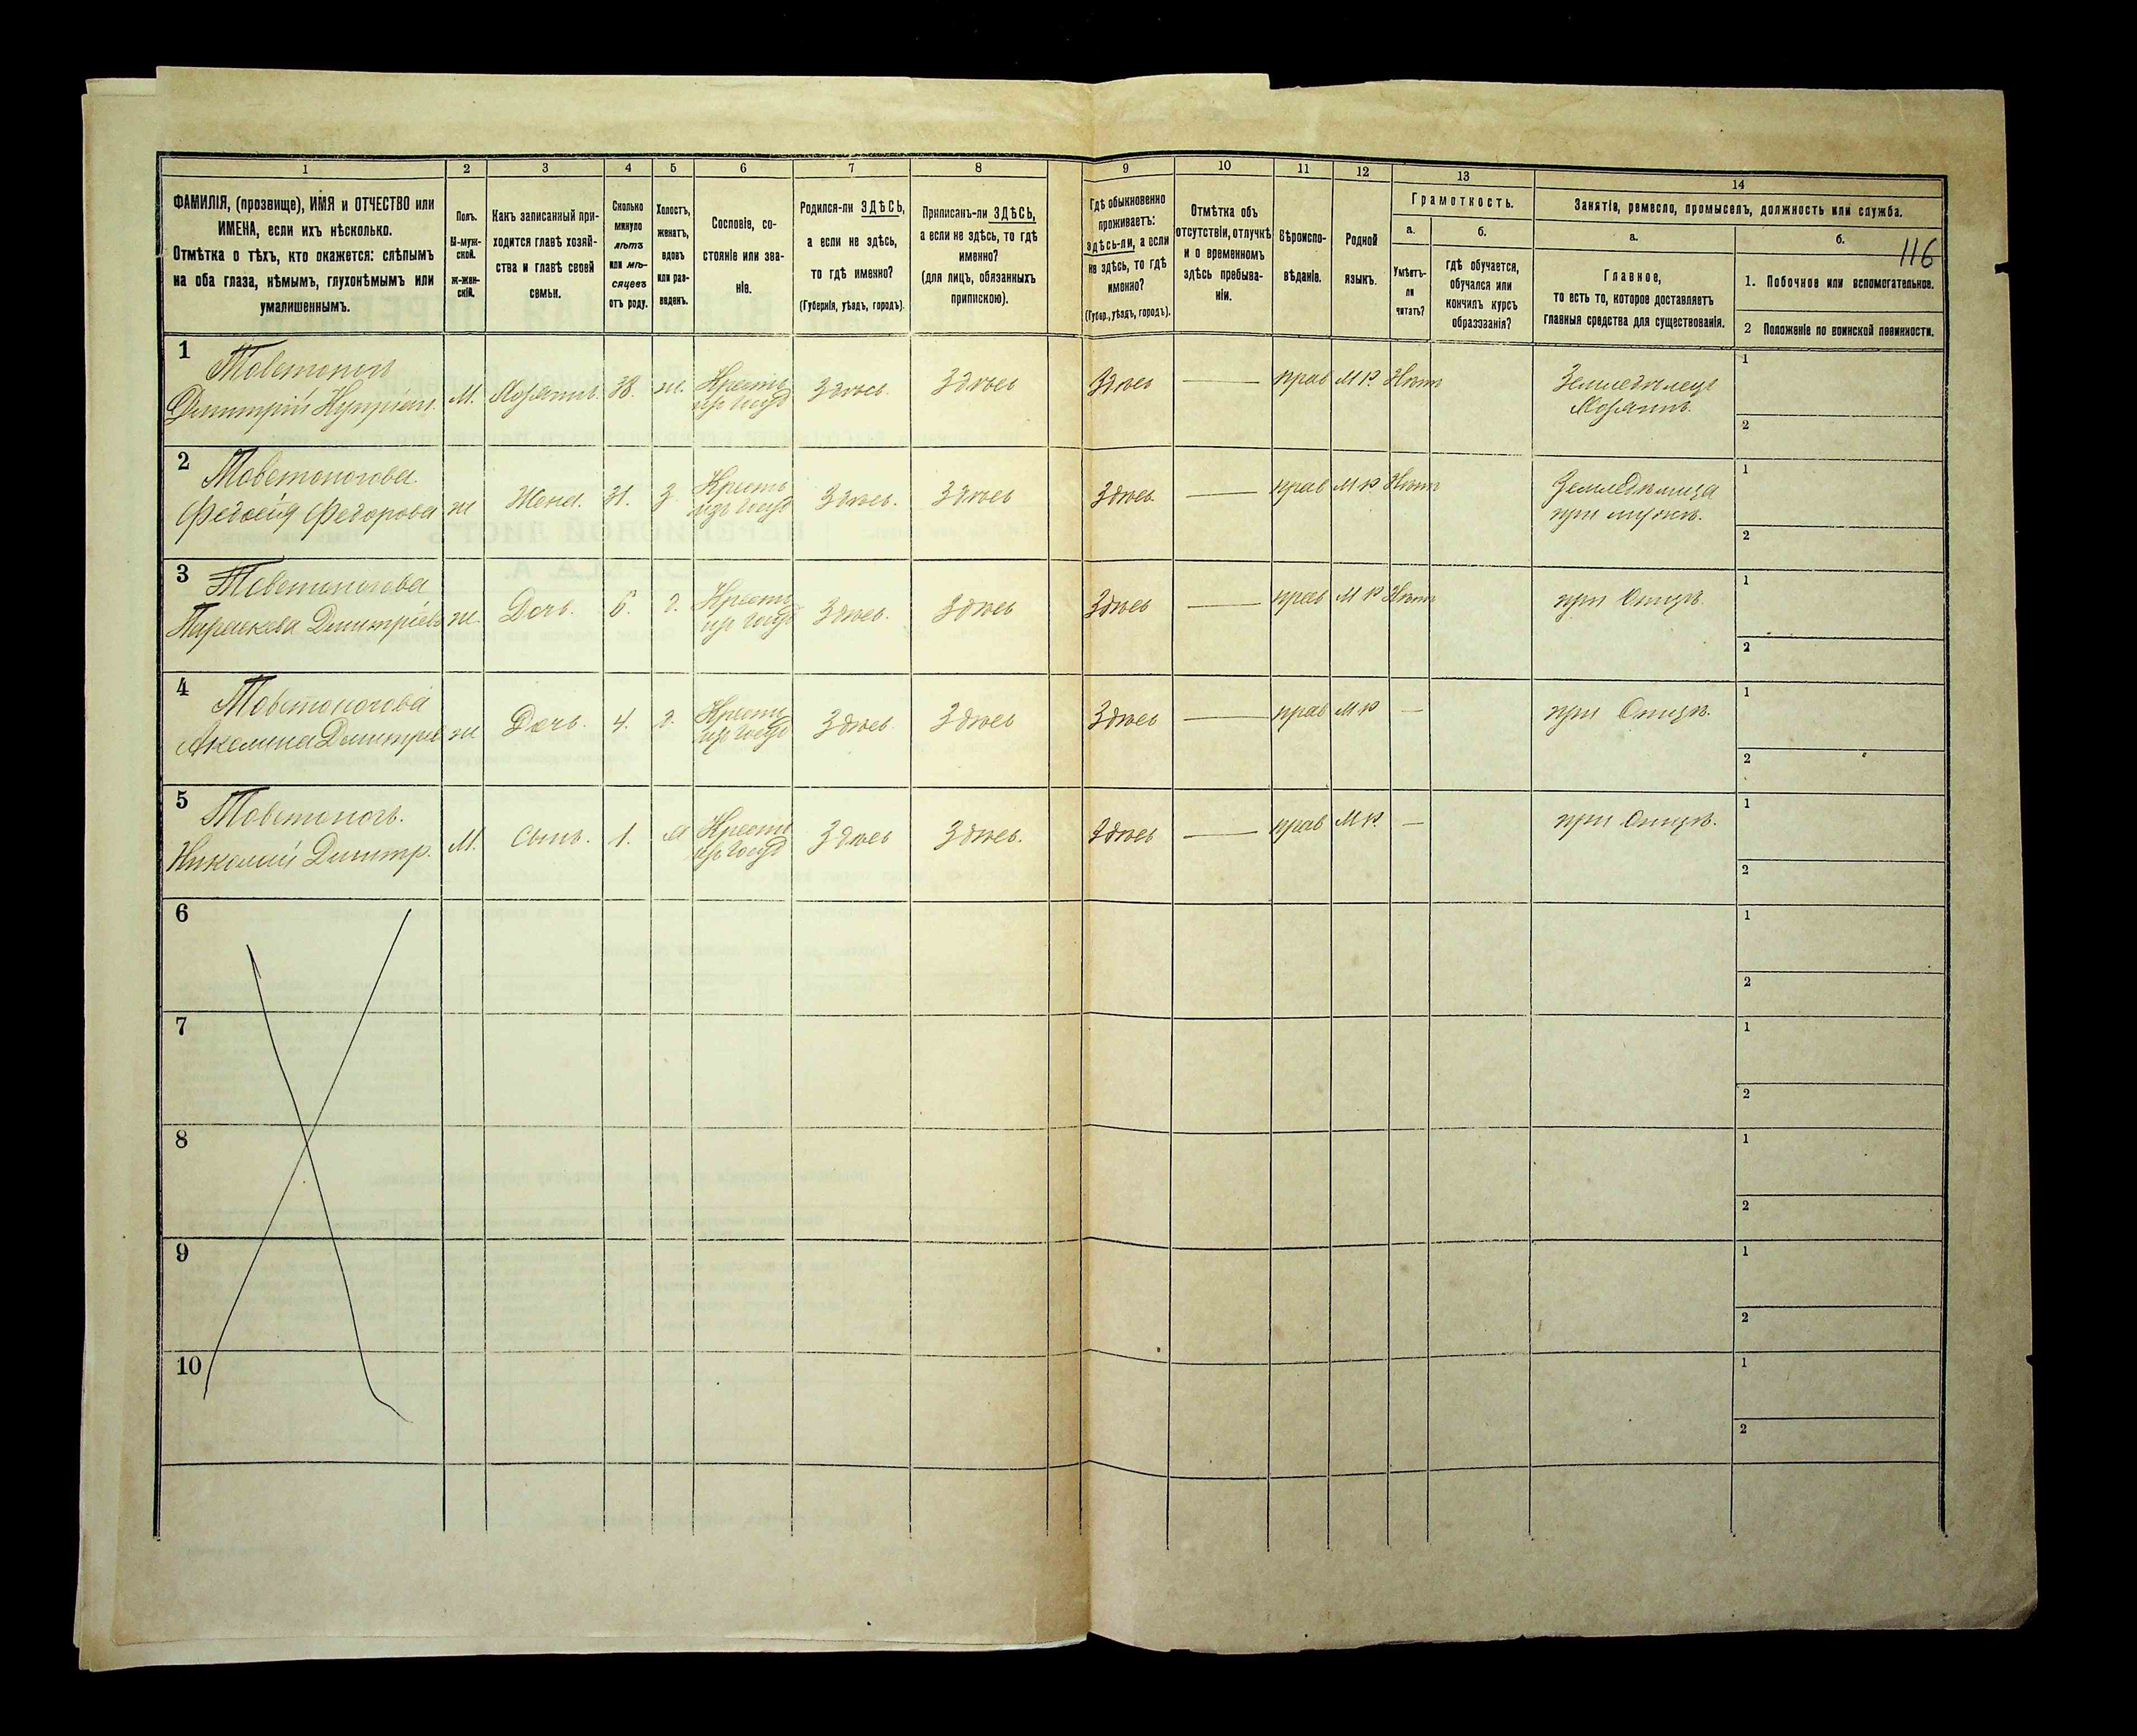 1 2 3 4 5 6 7 8 9 10 11 12 13 14
ФАМИЛІЯ, (прозвище), ИМЯ и ОТЧЕСТВО или
ИМЕНА, если ихъ нѣсколько.
Отмѣтка о тѣхъ, кто окажется: слѣпымъ
на оба глаза, нѣмымъ, глухонѣмымъ или
умалишеннымъ.
Полъ.
М-муж-
ской.
ж-жен-
скій.
Какъ записанный при-
ходится главѣ хозяй-
ства и главѣ своей
семьи.
Сколько
минуло
лѣтъ
или мѣ-
сяцевъ
отъ роду.
Холостъ,
женатъ,
вдовъ
или раз-
веденъ.
Сословіе, со-
стояніе или зва-
ніе.
Родился-ли ЗДѢСЬ,
а если не здѣсь,
то гдѣ именно?
(Губернія, уѣздъ, городъ).
Приписанъ-ли ЗДѢСЬ,
а если не здѣсь, то гдѣ
именно?
(для лицъ, обязанныхъ
припискою).
Гдѣ обыкновенно
проживаетъ:
здѣсь-ли, а если
не здѣсь, то гдѣ
именно?
(Губер., уѣздъ, городъ).
Отмѣтка объ
отсутствіи, отлучкѣ
и о временномъ
здѣсь пребыва-
ніи.
Вѣроиспо-
вѣданіе.
Родной
языкъ.
Грамотность.
а.
Умѣетъ-
ли
читать?
б.
гдѣ обучается,
обучался или
кончилъ курсъ
образованія?
Занятіе, ремесло, промыселъ, должность или служба.
а.
Главное,
то есть то, которое доставляетъ
главныя средства для существованія.
б.
116
1. Побочное или вспомогательное.
2 Положеніе по воинской повинности.
1
Товстоногъ
Дмитрій М. Хозяинъ. 38. ж. Кресть Здѣсь. Здѣсь Здѣсь — прав МР Нѣтъ Земледѣлецъ
Хозяинъ.
1
2
2
Товстоногова
Федорова ж Жена. 31. З. Кресть Здѣсь. Здѣсь Здѣсь — прав МР Нѣтъ
при мужѣ.
1
2
3
Товстоногова
Параскева Дмитріева ж Дочь. 6. д. Кресть Здѣсь. Здѣсь Здѣсь — прав МР Нѣтъ при Отцѣ.
1
2
4
Товстоногова
Акелина Дмитрів ж Дочь. 4. д. Кресть Здѣсь. Здѣсь Здѣсь — прав МР — при Отцѣ.
1
2
5
Товстоногъ.
Николай Дмитр. М. Сынъ. 1. Кресть Здѣсь Здѣсь. Здѣсь — прав МР. — при Отцѣ.
1
2
6
1
2
7
1
2
8
1
2
9
1
2
10
1
2